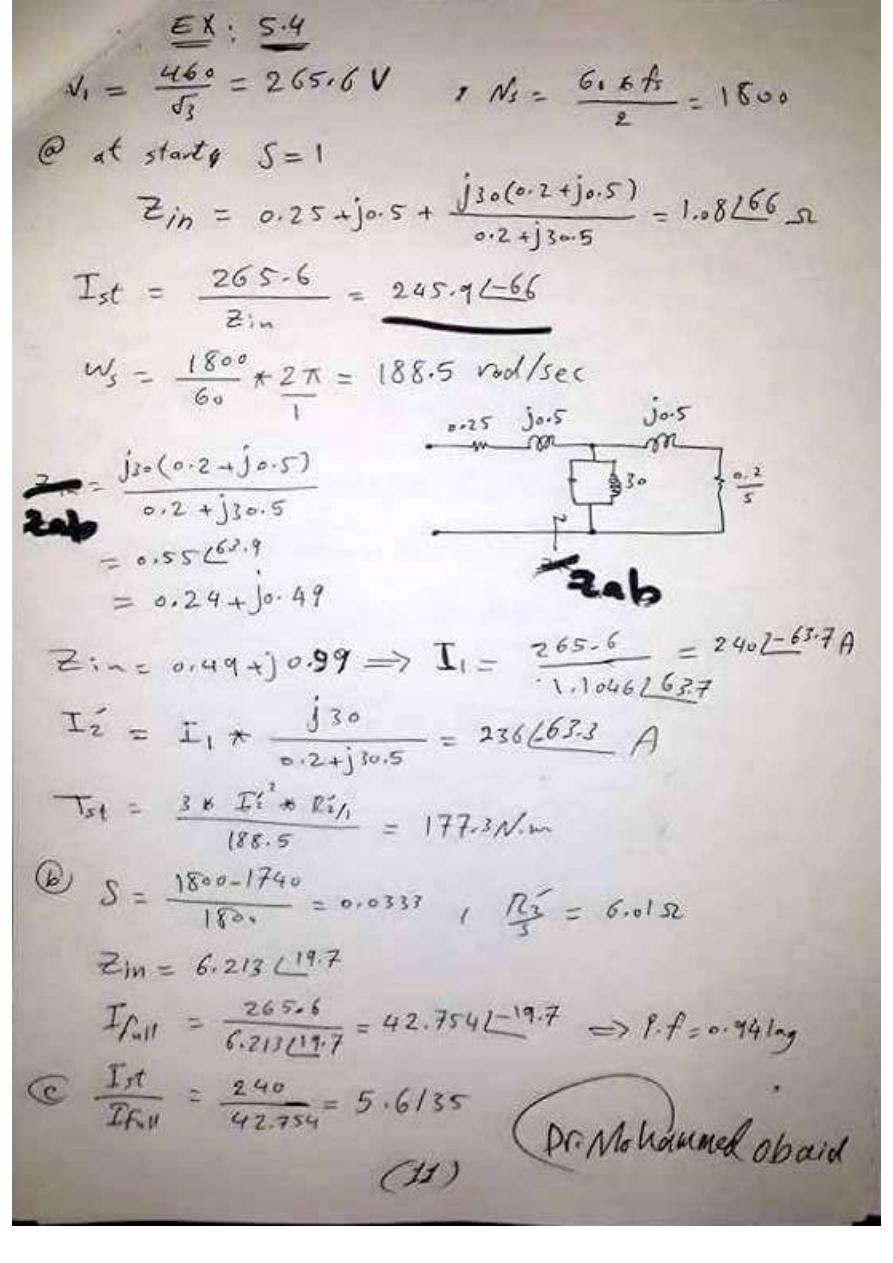 EX: 5.4
V₁ = 460/√3 = 265.6 V , Ns = 60 * fs/2 = 1800
@ at start, S = 1
Zin = 0.25 + j0.5 + j30(0.2+j0.5)/0.2+j30.5 = 1.08∠66 Ω
Ist = 265.6/Zin = 245.9∠-66
Ws = 1800/60 * 2π/1 = 188.5 rad/sec
0.25 j0.5 j0.5
30 0.2/S
Zab = j30(0.2+j0.5)/0.2+j30.5
= 0.55∠63.9
Zab
= 0.24 + j0.49
Zin = 0.49 + j0.99 ⇒ I₁ = 265.6/1.1046∠63.7 = 240∠-63.7 A
I₂́ = I₁ * j30/0.2+j30.5 = 236∠63.3 A
Tst = 3 * I₂́² * R₂́/1/188.5 = 177.3 N.m
(b) S = 1800-1740/1800 = 0.0333 , R₂́/S = 6.01 Ω
Zin = 6.213∠19.7
Ifull = 265.6/6.213∠19.7 = 42.754∠-19.7 ⇒ P.f = 0.94 lag
(c) Ist/Ifull = 240/42.754 = 5.6135
Dr. Mohammed obaid
(11)